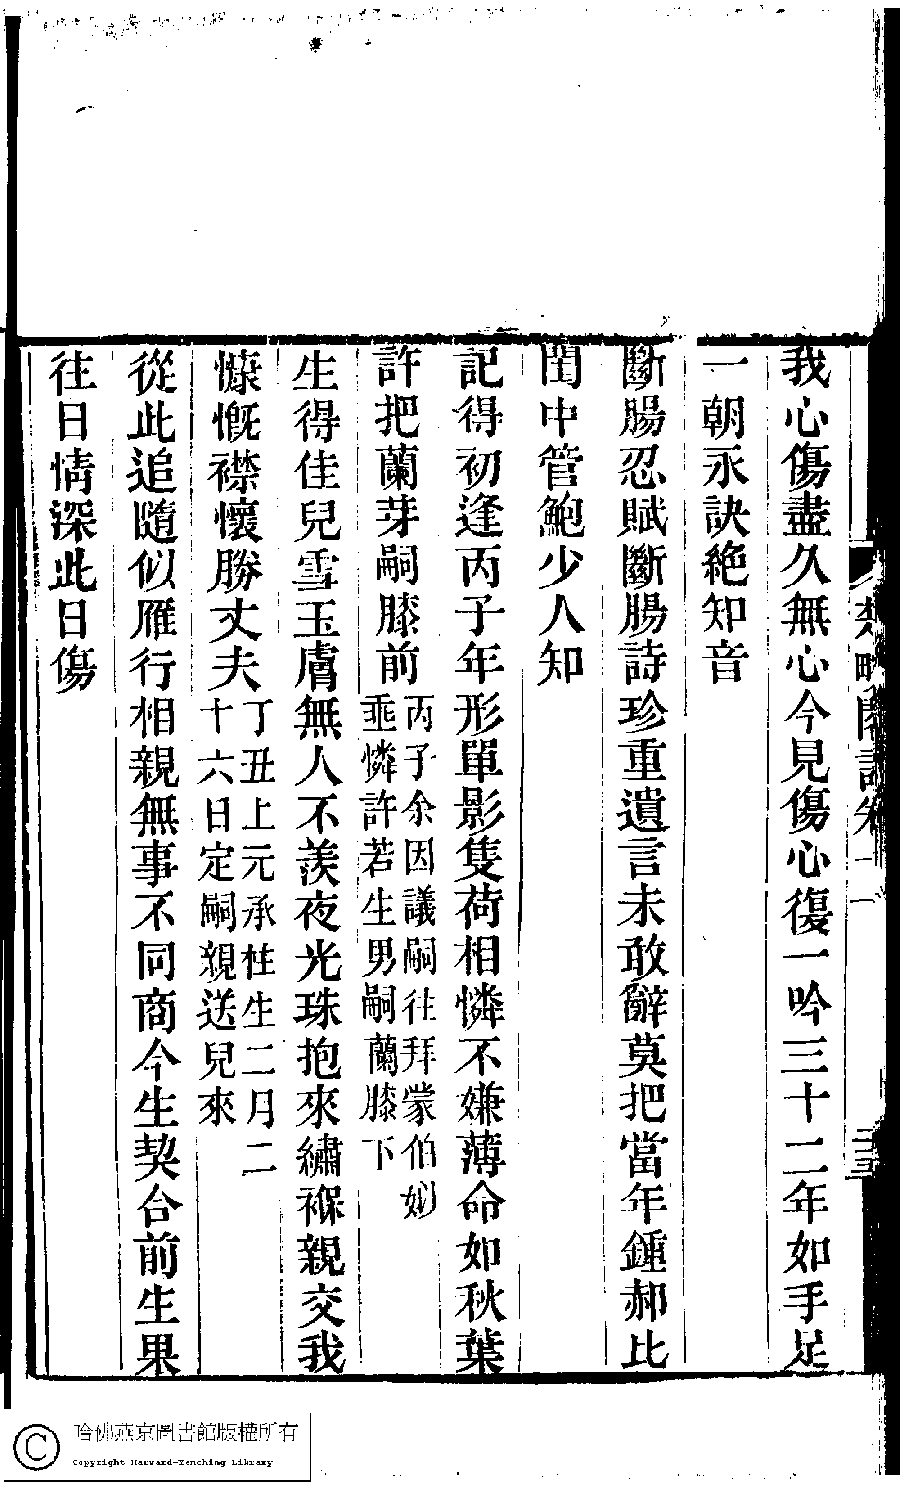 我心傷盡久無心今見傷心復一吟三十二年如手足
一朝永訣絶知音
斷腸忍賦斷腸詩珍重遺言未敢辭莫把當年鍾郝比
閨中管鮑少人知
記得初逢丙子年形單影隻荷相憐不嫌薄命如秋葉
許把蘭芽嗣膝前丙子余因議嗣往拜蒙伯姒
乖憐許若生男嗣蘭膝下
生得佳兒雪玉膚無人不羨夜光珠抱來繡褓親交我
慷慨襟懷勝丈夫丁丑上元承桂生二月二
十六日定嗣親送兒來
從此追隨似雁行相親無事不同商今生契合前生果
往日情深此日傷
哈佛燕京圖書館版權所有
Copyright Harvard-Yenching Library